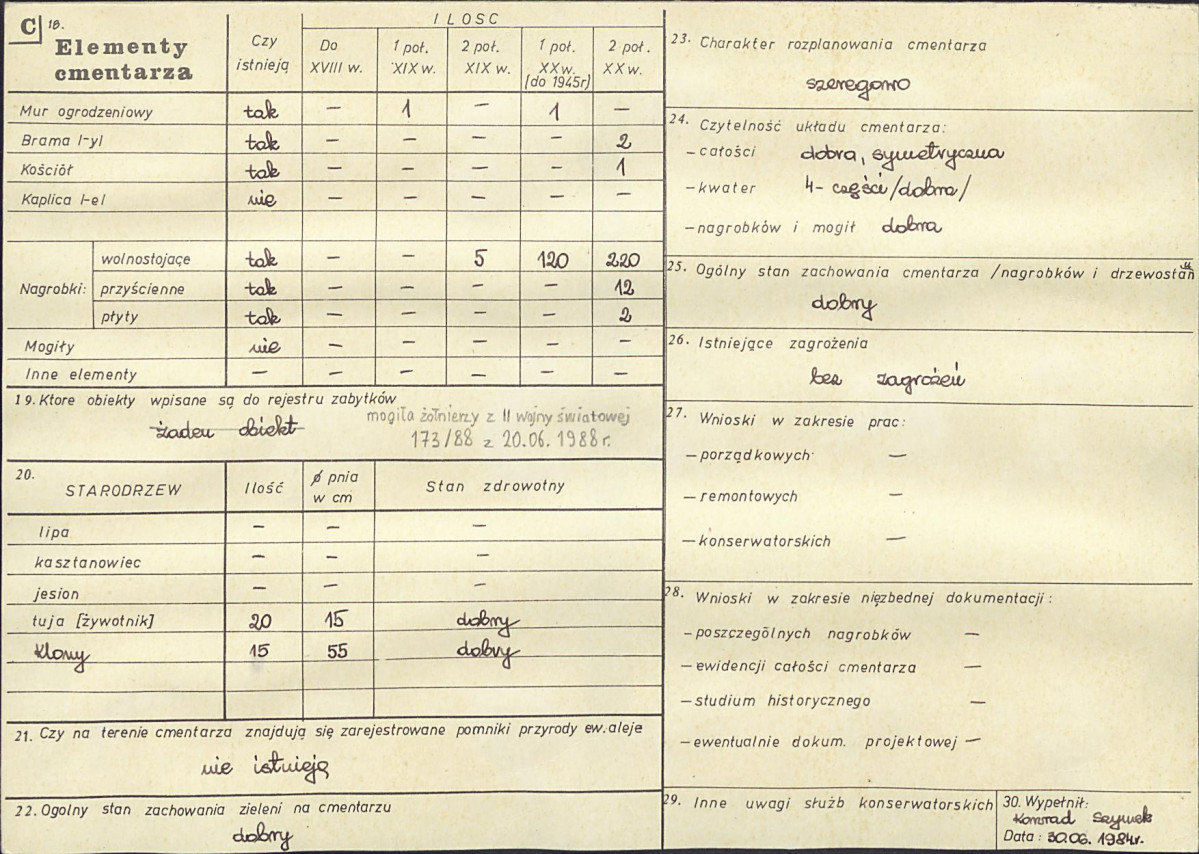 C 18.
Elementy cmentarza
Czy istnieją
ILOSC
Do XVIII w.
1 poł. XIX w.
2 poł. XIX w.
1 poł. XX w. [do 1945r]
2 poł. XX w.
Mur ogrodzeniowy tak — 1 — 1 —
Brama l-yl tak — — — — 2
Kościół tak — — — — 1
Kaplica l-el nie — — — — —
Nagrobki:
wolnostojące tak — — 5 120 220
przyścienne tak — — — — 12
płyty tak — — — — 2
Mogiły nie — — — — —
Inne elementy — — — — — —
19. Ktore obiekty wpisane są do rejestru zabytków
żaden obiekt
mogiła żołnierzy z II wojny światowej
173/88 z 20.06.1988 r.
20. STARODRZEW Ilość ø pnia w cm Stan zdrowotny
lipa — — —
kasztanowiec — — —
jesion — — —
tuja [żywotnik] 20 15 dobry
klony 15 55 dobry
21. Czy na terenie cmentarza znajdują się zarejestrowane pomniki przyrody ew. aleje
nie istnieją
22. Ogolny stan zachowania zieleni na cmentarzu
dobry
23. Charakter rozplanowania cmentarza
szeregowo
24. Czytelność układu cmentarza:
— całości dobra, symetryczna
— kwater 4- części /dobra/
— nagrobków i mogił dobra
25. Ogólny stan zachowania cmentarza /nagrobków i drzewostan
dobry
26. Istniejące zagrożenia
bez zagrożeń
27. Wnioski w zakresie prac:
— porządkowych —
— remontowych —
— konserwatorskich —
28. Wnioski w zakresie nięzbednej dokumentacji:
— poszczególnych nagrobków —
— ewidencji całości cmentarza —
— studium historycznego —
— ewentualnie dokum. projektowej —
29. Inne uwagi służb konserwatorskich
30. Wypełnił:
Konrad Szymek
Data: 30.06.1984r.